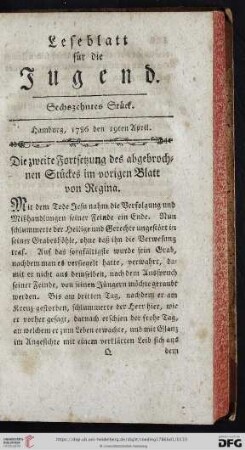 Leseblatt
für die
Jugend.
Sechszehntes Stück.
Hamburg, 1786 den 19ten April.
Die zweite Fortsetzung des abgebroch-
nen Stückes im vorigen Blatt
von Regina.
Mit dem Tode Jesu nahm die Verfolgung und
Mißhandlungen seiner Feinde ein Ende. Nun
schlummerte der Heilige und Gerechte ungestört in
seiner Grabeshöhle, ohne daß ihn die Verwesung
traf. Auf das sorgfältigste wurde sein Grab,
nachdem man es versiegelt hatte, verwahrt, da-
mit er nicht aus demselben, nach dem Ausspruch
seiner Feinde, von seinen Jüngern möchte geraubt
werden. Bis am dritten Tag, nachdem er am
Kreuz gestorben, schlummerte der Herr hier, wie
er vorher gesagt, darnach erschien der frohe Tag,
an welchem er zum Leben erwachte, und mit Glanz
im Angesichte mit einem verklärten Leib sich aus
Q dem
UNIVERSITÄTS-
BIBLIOTHEK
HEIDELBERG
DFG